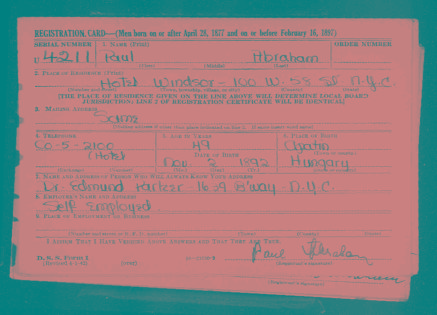 REGISTRATION CARD—(Men born on or after April 28, 1877 and on or before February 16, 1897)
SERIAL NUMBER 1. NAME (Print) ORDER NUMBER
U 4211 Paul Abraham
(First) (Middle) (Last)
2. PLACE OF RESIDENCE (Print)
Hotel Windsor - 100 W. 58 St. N.Y.C.
(Number and street) (Town, township, village, or city) (County) (State)
[THE PLACE OF RESIDENCE GIVEN ON THE LINE ABOVE WILL DETERMINE LOCAL BOARD
JURISDICTION; LINE 2 OF REGISTRATION CERTIFICATE WILL BE IDENTICAL]
3. MAILING ADDRESS
Same
[Mailing address if other than place indicated on line 2. If same insert word same]
4. TELEPHONE 5. AGE IN YEARS 6. PLACE OF BIRTH
Co-5-2100 49
DATE OF BIRTH (Town or county)
(Hotel Nov. 2 1892 Hungary
(Exchange) (Number) (Mo.) (Day) (Yr.) (State or country)
7. NAME AND ADDRESS OF PERSON WHO WILL ALWAYS KNOW YOUR ADDRESS
Dr. Edmund B'way - N.Y.C.
8. EMPLOYER'S NAME AND ADDRESS
Self Employed
9. PLACE OF EMPLOYMENT OR BUSINESS
(Number and street or R. F. D. number) (Town) (County) (State)
I AFFIRM THAT I HAVE VERIFIED ABOVE ANSWERS AND THAT THEY ARE TRUE.
Paul Abraham
D. S. S. Form 1
(Revised 4-1-42) (over) (Registrant's signature)
(Registrant's signature)